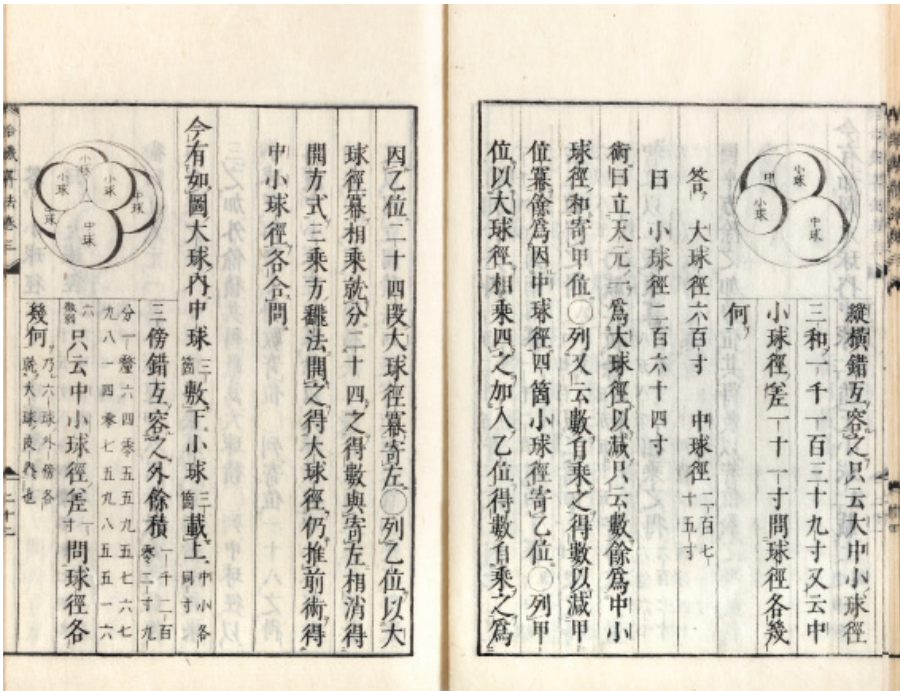 小球
中
小球
中球
縱橫錯互容之只云大中小球徑
三和一千一百三十九寸又云中
小球徑差一十一寸問球徑各幾
何
答 大球徑六百寸 中球徑二百七十五寸
曰 小球徑二百六十四寸
術曰立天元一爲大球徑以減只云數餘爲中小
球徑和寄甲位〇列又云數自乘之得數以減甲
位冪餘爲因中球徑四箇小球徑寄乙位〇列甲
位以大球徑相乘四之加入乙位得數自乘之爲
因乙位二十四段大球徑冪寄左〇列乙位以大
球徑冪相乘就分二十四之得數與寄左相消得
開方式三乘方飜法開之得大球徑仍推前術得
中小球徑各合問
今有如圖大球內中球三箇敷下小球三箇載上中小各同寸
小球
小球
小球
中球
中球
三傍錯互容之外餘積一千二百零二寸九
分一釐六四零五五九五七六七
九八一四零七五九八五五一六
六微弱只云中小球徑差一寸問球徑各
幾何乃六球外傍各就大球皮界也
算法卷三
二十二